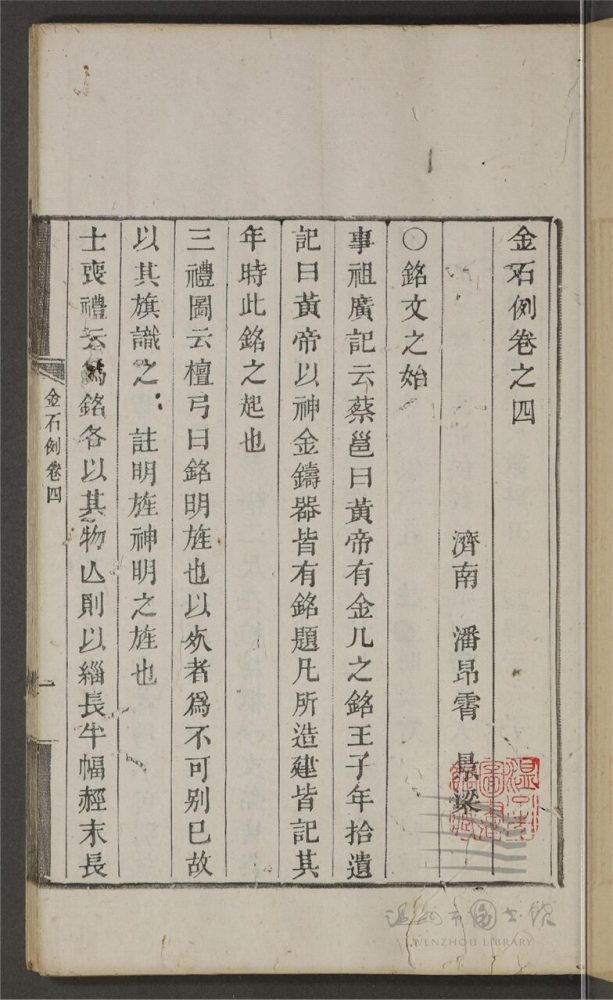 金石例卷之四
濟南　潘昂霄　景梁
○銘文之始
事祖廣記云蔡邕曰黃帝有金几之銘王子年拾遺
記曰黃帝以神金鑄器皆有銘題凡所造建皆記其
年時此銘之起也
三禮圖云檀弓曰銘明旌也以𣦸者爲不可别已故
以其旗識之　註明旌神明之旌也
士喪禮云爲銘各以其物亾則以緇長半幅䞓末長
金石例卷四
一
温州市圖書館
WENZHOU LIBRARY